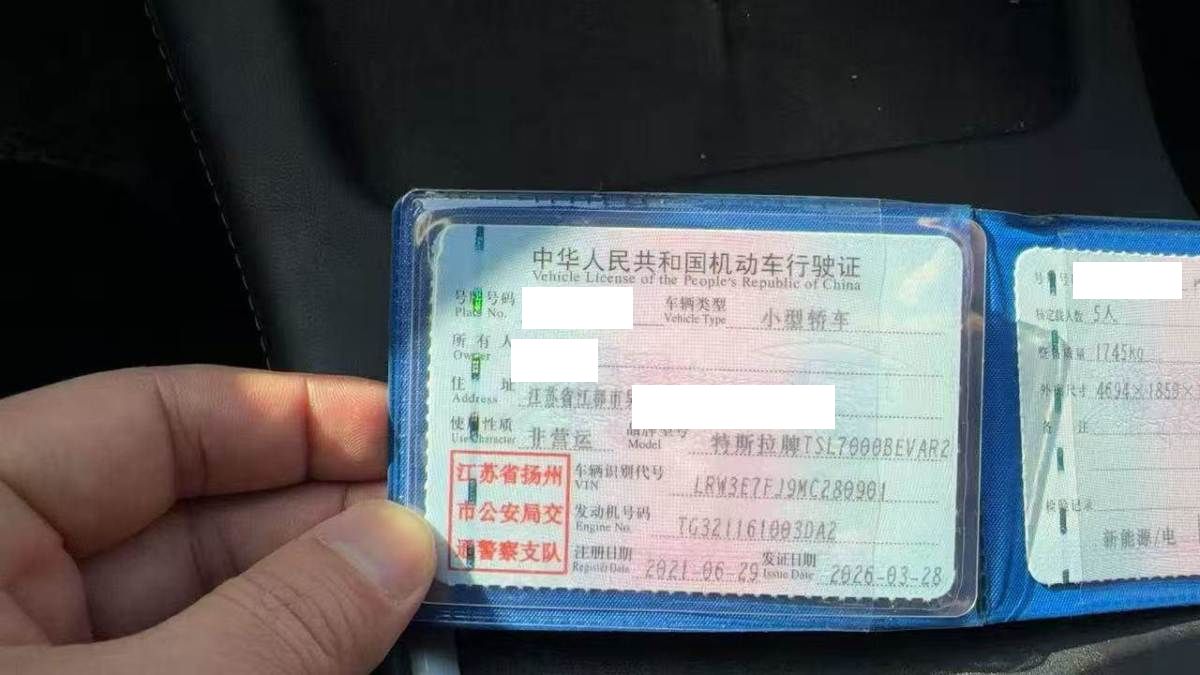 中华人民共和国机动车行驶证
Vehicle License of the People's Republic of China
号牌号码
Plate No.
车辆类型
Vehicle Type
小型轿车
所有人
Owner
住址
Address
江苏省江都市
使用性质
Use Character
非营运
品牌型号
Model
特斯拉牌TSL7000BEVAR2
江苏省扬州
市公安局交
通警察支队
车辆识别代号
VIN
LRW3E7FJ9MC280901
发动机号码
Engine No.
TG321161003DA2
注册日期
Register Date
2021-06-29
发证日期
Issue Date
2026-03-28
核定载人数 5人
整备质量 1745kg
外廓尺寸 4694×1850×
备注
检验记录
新能源/电